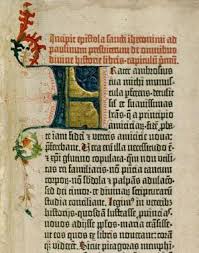 Incipit epistola sancti iheronimi ad
paulinum presbiterum de omnibus
divine historie libris. capitulū pmū.
Frater ambrosius
tua michi munuscula
pferens. detulit
sił et suavissimas
lrās. q̄ a principio
amicicia℞. fidē pbate
iam fidei et veteris amicicie nova:
pferebant. Vera eni illa necessitudo ē.
et xpī glutino copulata. qm̄ non utilitas
rei familiaris. nō pn̄cia tantum
corporū. nō sbdola et palpās adulacō.
sed dei timor. et divina℞ scriptura℞
studia conciliant. Legimus in veterib
historijs. quosdā lustrasse puīcias.
novos adijsse pplos. maria trāsisse.
ut eos quos ex libris noverant: coram
q; viderēt. Sicut pitagoras memphi